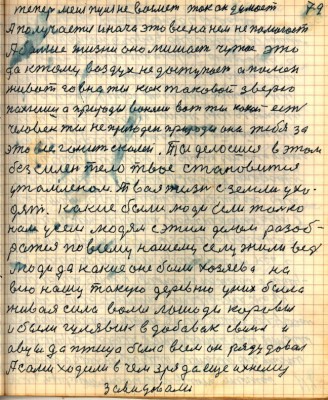 79
тепер меш пум не возмет так он думает
А получается иначе это все на нем не помогает
А самые жизни оно лишает чужое это
да к тому воздух не доступает а полон
живот говна ты как таковой зверю
природы вонеш вот ты какой ест
человек ты не пригоден природы она тебя за
это все гонит с полей. Ты делосися в этом
безсилен тело твое становится
утомленом. Твая жизн с земли ухо
дят. Какие были люди если толко
нам усем людям с этим делом разоб
ратся по всему нашему селу жили вед
люди да какие оне были хозяева на
всю нашу такую деревню у них была
живая сила волы лошади коровы
и были гулявик в добавак свиня и
авци да птица была всем он ряду довал
А сами ходили в чем зря да еще и к нему
завидовали